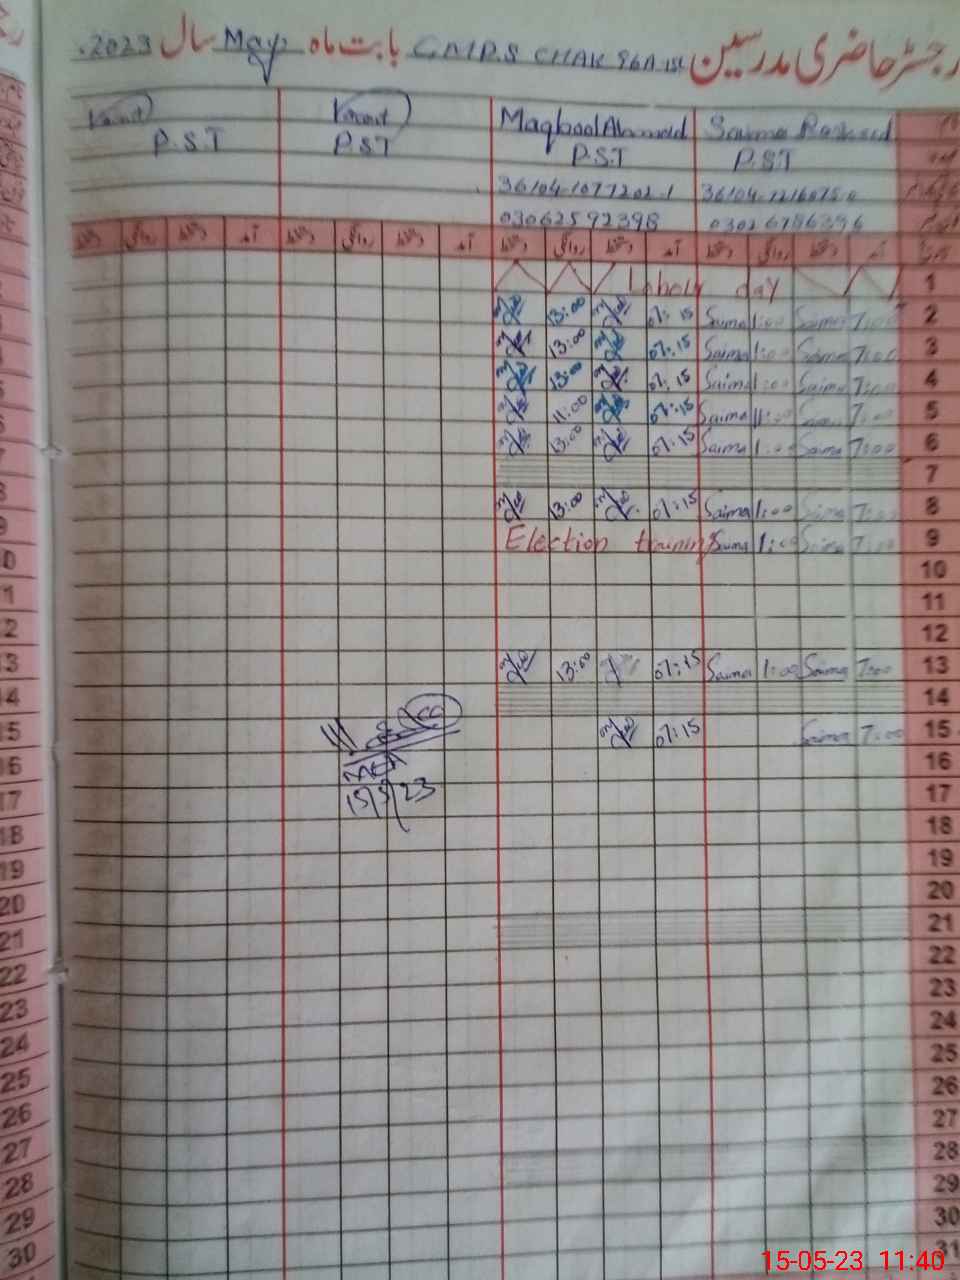 رجسٹر حاضری مدرسین G.M.P.S CHAK 96A 1st بابت ماہ May سال 2023
Saima Rasheed Maqbool Ahmed Vacant Vacant
P.S.T P.S.T P.S.T P.S.T
36104-1077202-1
03062592398 03026786396
آمد دستخط روانگی دستخط آمد دستخط روانگی دستخط آمد دستخط روانگی دستخط آمد دستخط روانگی دستخط
1 Labour day
2 7:00 Saima 1:00 Saima 07:15 13:00
3 7:00 Saima 1:00 Saima 07:15 13:00
4 7:00 Saima 1:00 Saima 07:15 13:00
5 7:00 Saima 11:00 Saima 07:15 11:00
6 7:00 Saima 1:00 Saima 07:15 13:00
7
8 7:00 Saima 1:00 Saima 07:15 13:00
9 7:00 Saima 1:00 Saima Election training
10
11
12
13 7:00 Saima 1:00 Saima 07:15 13:00
14
15 7:00 Saima 07:15
16
MEA
17
15/5/23
18
19
20
21
22
23
24
25
26
27
28
29
30
31
15-05-23 11:40